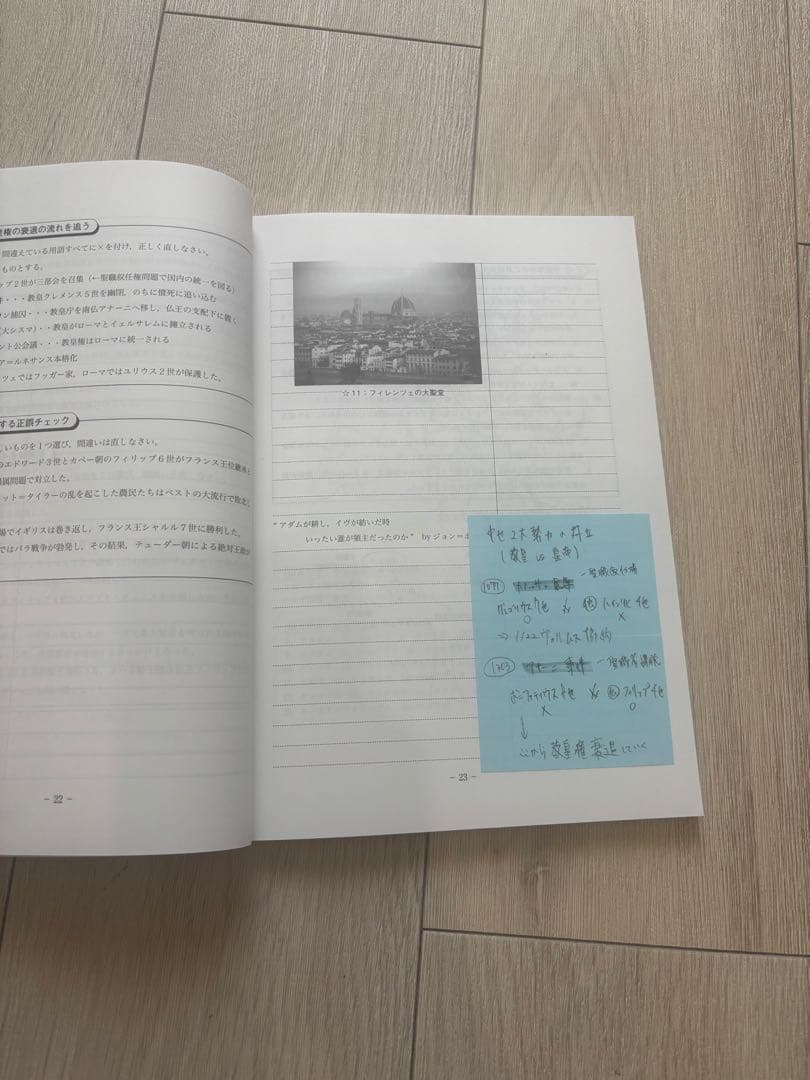 権の衰退の流れを追う
間違えている用語すべてに×を付け，正しく直しなさい。
ものとする。
ップ2世が三部会を召集（←聖職叙任権問題で国内の統一を図る）
・・・教皇クレメンス5世を幽閉，のちに憤死に追い込む
ン捕囚・・・教皇庁を南仏アナーニへ移し，仏王の支配下に置く
大シスマ）・・教皇がローマとイェルサレムに擁立される
ント公会議・・・教皇権はローマに統一される
ア＝ルネサンス本格化
ツェではフッガー家，ローマではユリウス2世が保護した。
する正誤チェック
しいものを1つ選び，間違いは直しなさい。
のエドワード3世とカペー朝のフィリップ6世がフランス王位継承と
属問題で対立した。
ット＝タイラーの乱を起こした農民たちはペストの大流行で敗北し
場でイギリスは巻き返し，フランス王シャルル7世に勝利した。
ではバラ戦争が勃発し，その結果，テューダー朝による絶対王政が
－22－
☆11：フィレンツェの大聖堂
"アダムが耕し，イヴが紡いだ時
いったい誰が領主だったのか" byジョン＝ボ
中世2大勢力の対立
（教皇 vs 皇帝）
1077 ー聖職叙任権
グレゴリウス7世 vs ハインリヒ4世
○ ×
⇒1122ヴォルムス協約
1303 ー聖職者課税
ボニファティウス8世 vs フィリップ4世
× ○
↓
ここから教皇権衰退していく
－23－